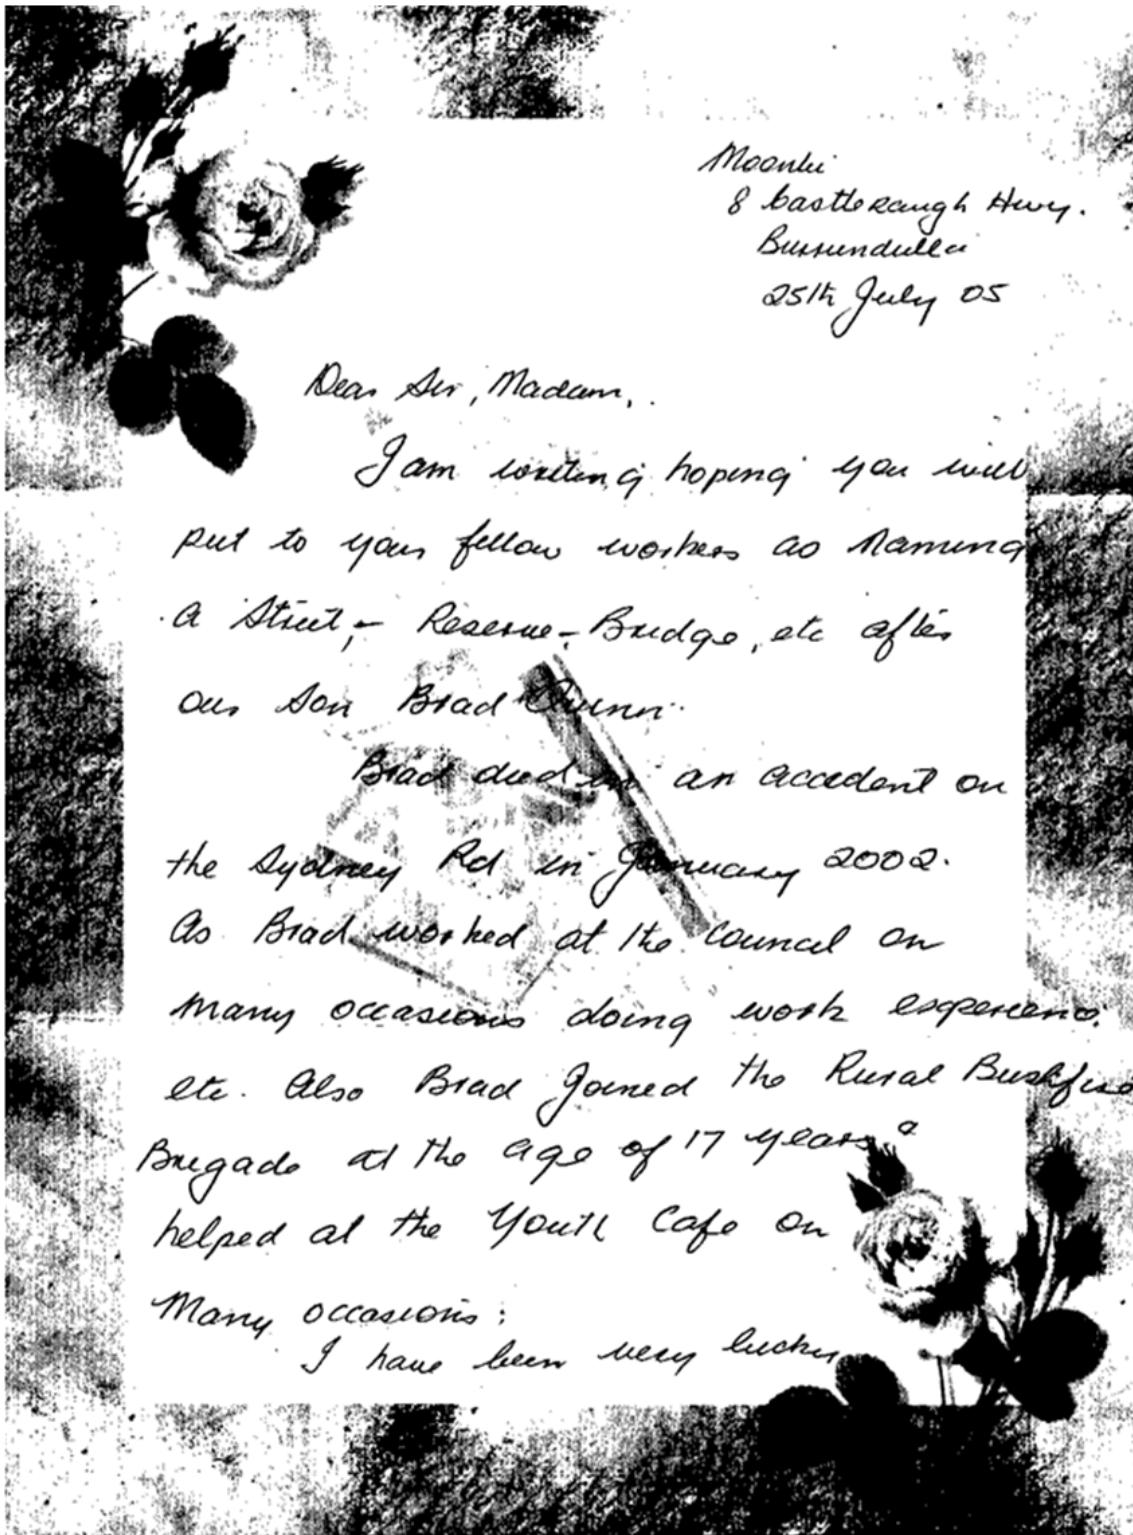 Moonlii
8 Castlereaugh Hwy.
Burrundulla
25th July 05
Dear Sir, Madam,.
I am writing hoping you will
put to your fellow workers as Naming
a Street, - Reserve - Bridge, etc after
our Son Brad Quinn.
Brad died in an accident on
the Sydney Rd in January 2002.
As Brad worked at the Council on
many occasions doing work experience.
etc. Also Brad Joined the Rural Bushfire
Brigade at the age of 17 years &
helped at the Youth Cafe on
Many occasions:
I have been very lucky